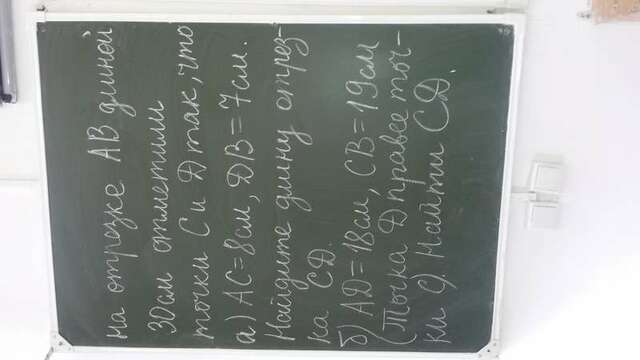 на отрезке AB длиной
30см отметили
точки C и D так, что
а) AC=8см, DB=7см.
Найдите длину отрез-
ка CD.
б) AD=18см, CB=19см
(Точка D правее точ-
ки C). Найти CD.